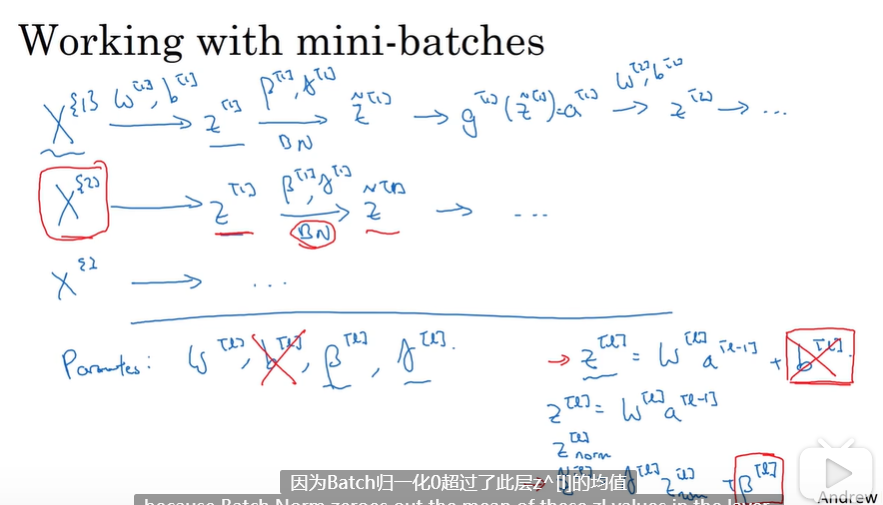 Working with mini-batches
X^{1} →(W^[1], b^[1]) z^[1] →(β^[1], γ^[1], BN) z̃^[1] → g^[1](z̃^[1]) = a^[1] →(W^[2], b^[2]) z^[2] → ...
X^{2} → z^[1] →(β^[1], γ^[1], BN) z̃^[1] → ...
X^{} → ...
Parameters: W^[l], b^[l], β^[l], γ^[l].
→ z^[l] = W^[l] a^[l-1] + b^[l].
z^[l] = W^[l] a^[l-1]
z^[l]_norm
z̃^[l] = γ^[l] z^[l]_norm + β^[l]
因为Batch归一化0超过了此层z^[l]的均值
because Batch Norm zeroes out the mean of these zl values in the layer
Andrew